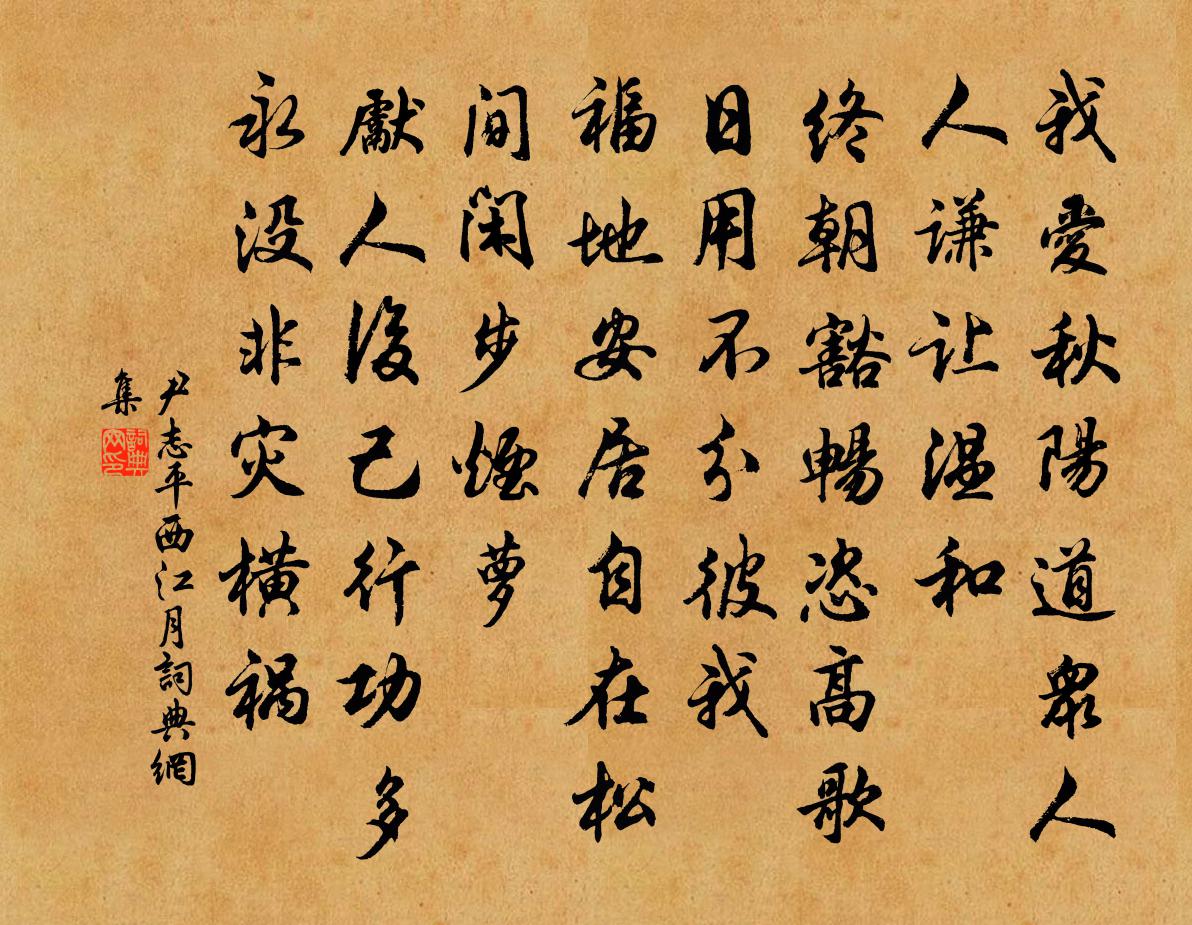 我愛秋陽道眾人
人谦让温和
终朝豁暢恣高歌
日用不分彼我
福地安居自在松
间闲步烟萝
獻人後己行功多
永没非灾横祸
尹志平西江月詞典網
集
詞典網印